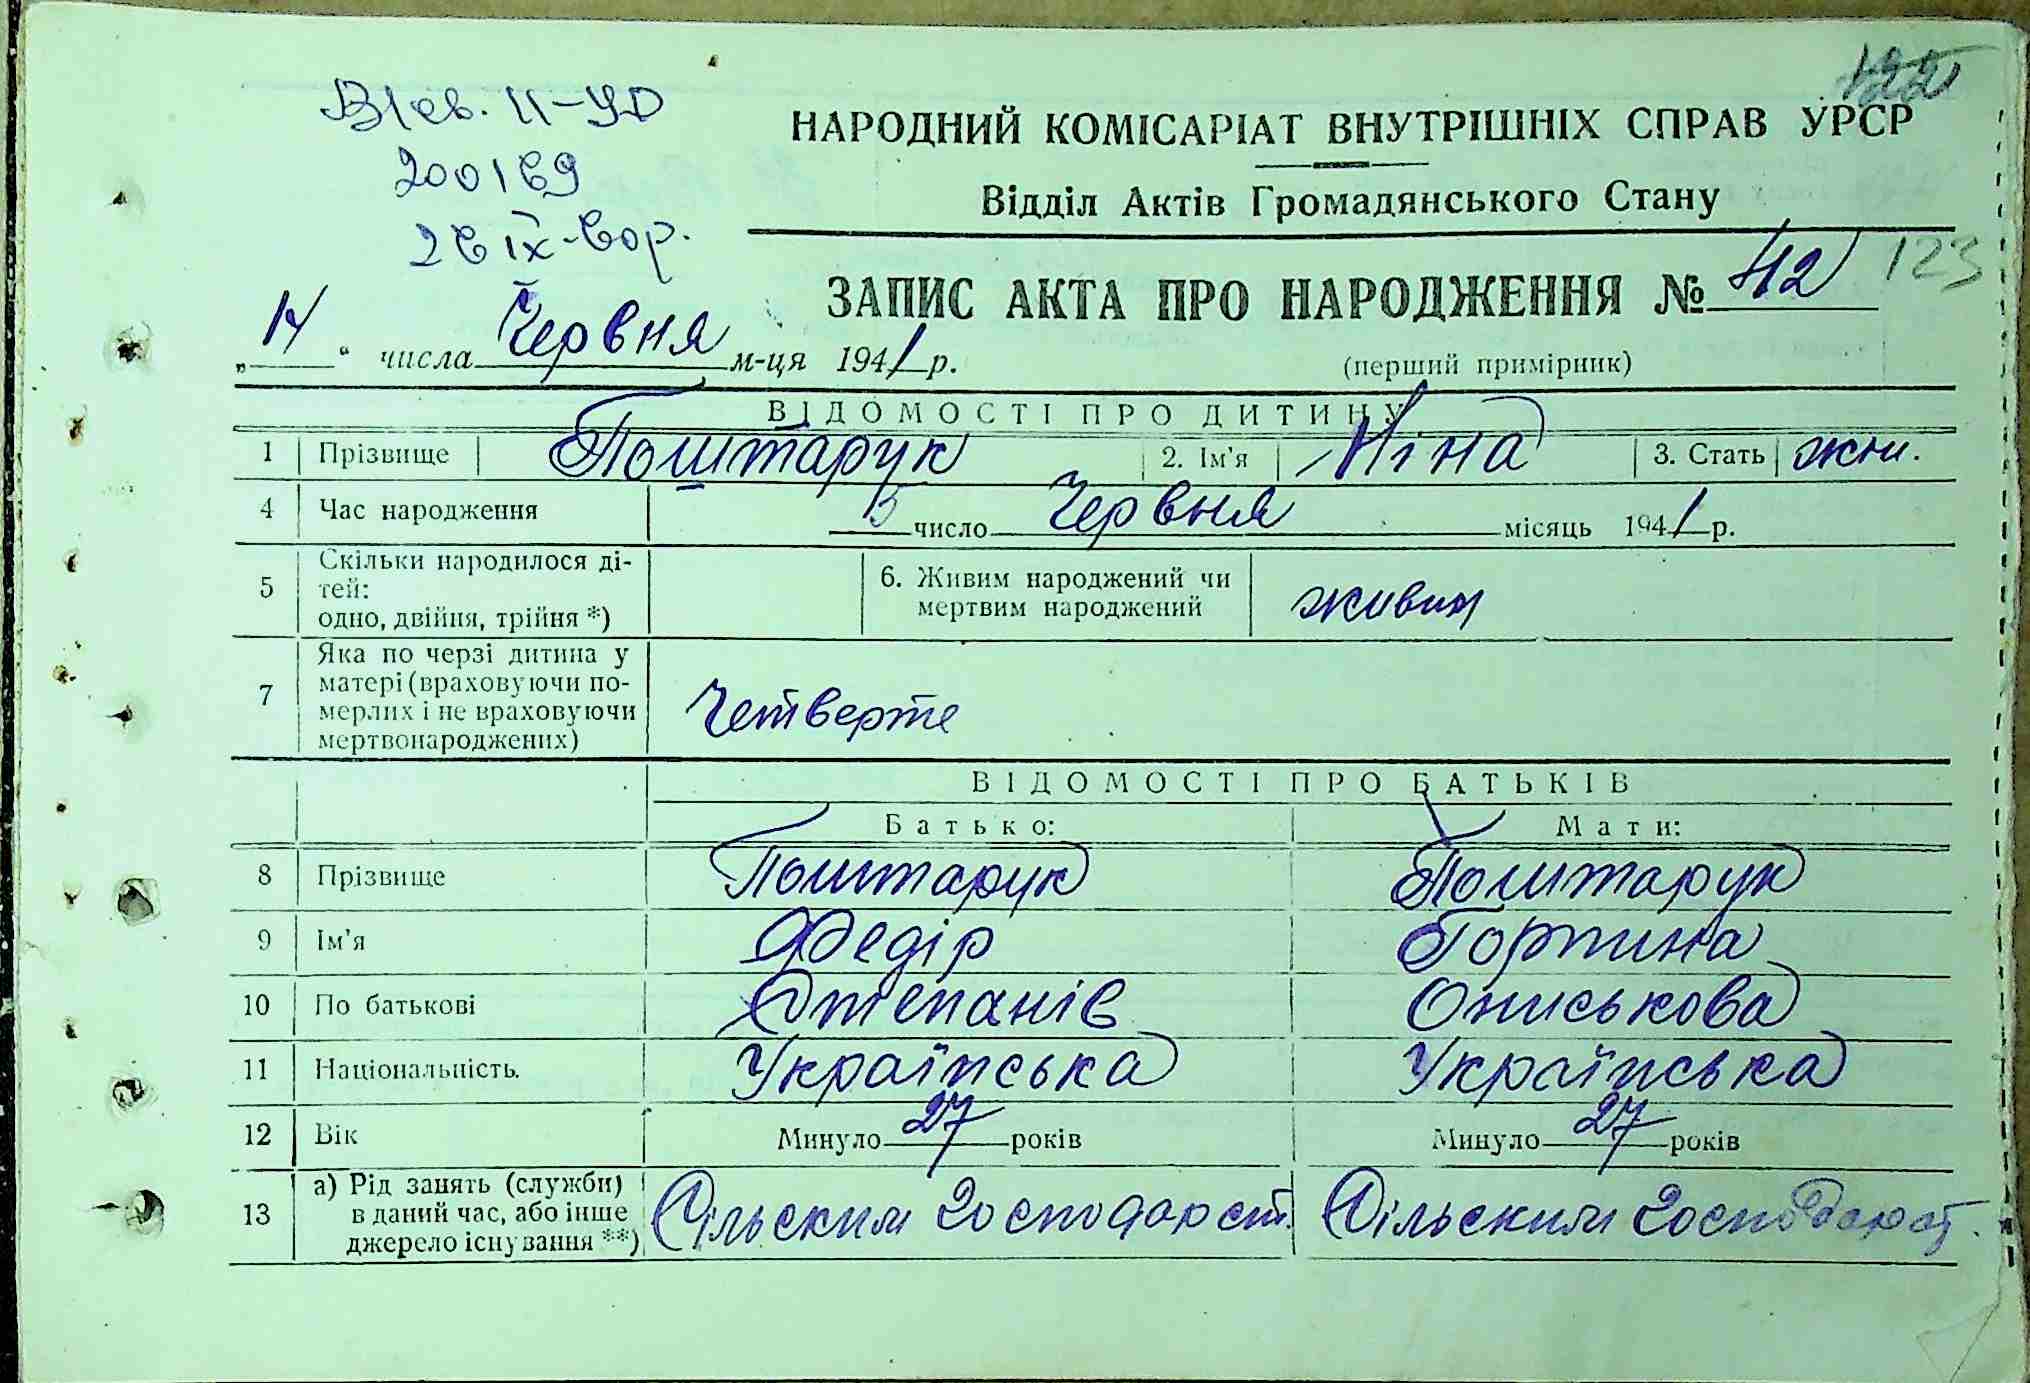 122
НАРОДНИЙ КОМІСАРІАТ ВНУТРІШНІХ СПРАВ УРСР
Відділ Актів Громадянського Стану
II-УД
200169
26 ІХ-
ЗАПИС АКТА ПРО НАРОДЖЕННЯ № 42 123
„14“ числа Червня м-ця 1941 р.
(перший примірник)
ВІДОМОСТІ ПРО ДИТИНУ
1 Прізвище Поштарук 2. Ім'я Ніна 3. Стать жін.
4 Час народження 5 число Червня місяць 1941 р.
5 Скільки народилося ді-
тей:
одно, двійня, трійня *)
6. Живим народжений чи
мертвим народжений живим
7 Яка по черзі дитина у
матері (враховуючи по-
мерлих і не враховуючи
мертвонароджених) четверте
ВІДОМОСТІ ПРО БАТЬКІВ
Батько: Мати:
8 Прізвище Поштарук Поштарук
9 Ім'я Федір Горпина
10 По батькові Степанів Ониськова
11 Національність. Українська Українська
12 Вік Минуло 27 років Минуло 27 років
13 а) Рід занять (служби)
в даний час, або інше
джерело існування **) Сільским господарст. Сільским господарст.